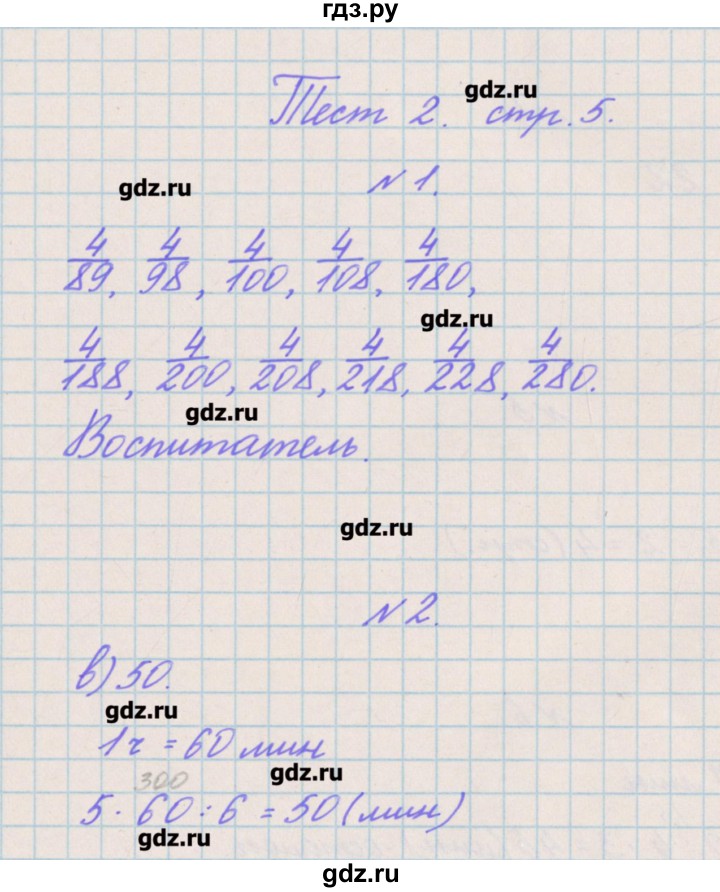 гдз.ру
Тест 2. стр. 5.
gdz.ru
gdz.ru
№ 1.
4/89, 4/98, 4/100, 4/108, 4/180,
gdz.ru
4/188, 4/200, 4/208, 4/218, 4/228, 4/280.
gdz.ru
Воспитатель.
gdz.ru
№ 2.
в) 50.
gdz.ru
1 ч = 60 мин
gdz.ru
300
5 · 60 : 6 = 50 (мин)
gdz.ru
gdz.ru